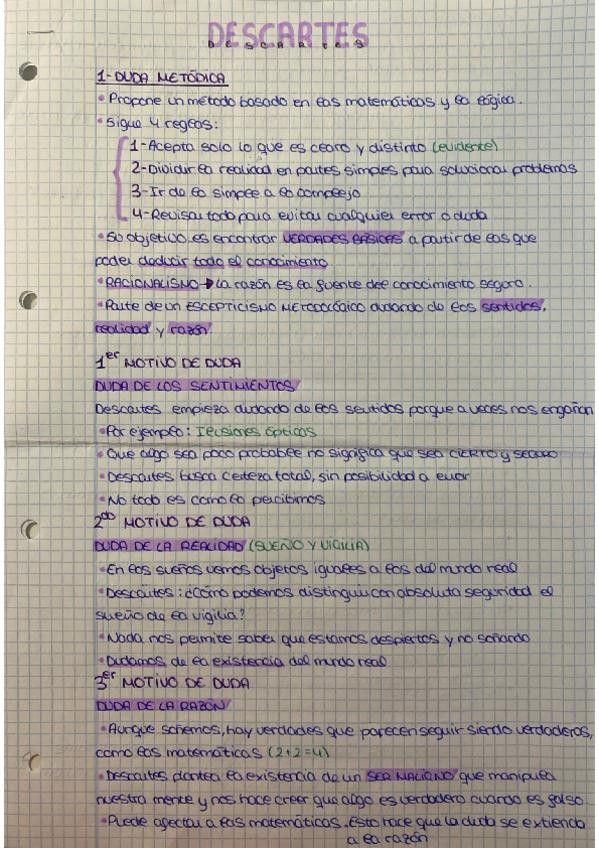 DESCARTES
DESCARTES
1-DUDA METÓDICA
• Propone un método basado en las matemáticas y la lógica.
• Sigue 4 reglas:
1-Acepta solo lo que es claro y distinto (evidente)
2-Dividir la realidad en partes simples para solucionar problemas
3-Ir de lo simple a lo complejo
4-Revisar todo para evitar cualquier error o duda
• Su objetivo es encontrar VERDADES BÁSICAS a partir de las que
poder deducir todo el conocimiento
• RACIONALISMO → La razón es la fuente del conocimiento seguro.
• Parte de un ESCEPTICISMO METODOLÓGICO dudando de los sentidos,
realidad y razón.
1er MOTIVO DE DUDA
DUDA DE LOS SENTIMIENTOS
Descartes empieza dudando de los sentidos porque a veces nos engañan
• Por ejemplo: Ilusiones ópticas
• Que algo sea poco probable no significa que sea CIERTO y SEGURO
• Descartes busca certeza total, sin posibilidad a error
• No todo es como lo percibimos
2do MOTIVO DE DUDA
DUDA DE LA REALIDAD (SUEÑO Y VIGILIA)
• En los sueños vemos objetos iguales a los del mundo real
• Descartes: ¿Cómo podemos distinguir con absoluta seguridad el
sueño de la vigilia?
• Nada nos permite saber que estamos despiertos y no soñando
• Dudamos de la existencia del mundo real
3er MOTIVO DE DUDA
DUDA DE LA RAZÓN
• Aunque soñemos, hay verdades que parecen seguir siendo verdaderas,
como las matemáticas (2+2=4)
• Descartes plantea la existencia de un SER MALIGNO que manipula
nuestra mente y nos hace creer que algo es verdadero cuando es falso.
• Puede afectar a las matemáticas. Esto hace que la duda se extienda
a la razón